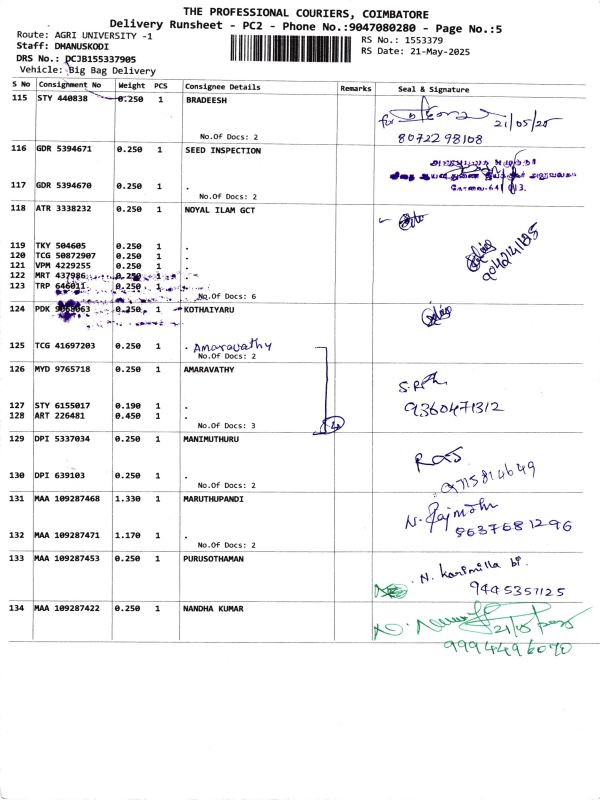 THE PROFESSIONAL COURIERS, COIMBATORE
Delivery Runsheet - PC2 - Phone No.:9047080280 - Page No.:5
Route: AGRI UNIVERSITY -1
RS No.: 1553379
Staff: DHANUSKODI
RS Date: 21-May-2025
DRS No.: DCJB155337905
Vehicle: Big Bag Delivery
S No Consignment No Weight PCS Consignee Details Remarks Seal & Signature
115 STY 440838 0.250 1 BRADEESH
21/05/25
No.Of Docs: 2
8072298108
116 GDR 5394671 0.250 1 SEED INSPECTION
117 GDR 5394670 0.250 1 .
No.Of Docs: 2
118 ATR 3338232 0.250 1 NOYAL ILAM GCT
119 TKY 504605 0.250 1 .
120 TCG 50872907 0.250 1 .
121 VPM 4229255 0.250 1 .
122 MRT 437986 0.250 1 .
123 TRP 646011 0.250 1 .
No.Of Docs: 6
124 PDK 9068063 0.250 1 KOTHAIYARU
125 TCG 41697203 0.250 1 . Amaravathy
No.Of Docs: 2
126 MYD 9765718 0.250 1 AMARAVATHY
127 STY 6155017 0.190 1 .
9360471312
128 ART 226481 0.450 1 .
No.Of Docs: 3
129 DPI 5337034 0.250 1 MANIMUTHURU
130 DPI 639103 0.250 1 .
9715814649
No.Of Docs: 2
131 MAA 109287468 1.330 1 MARUTHUPANDI
N. Rajmohn
132 MAA 109287471 1.170 1 .
No.Of Docs: 2
133 MAA 109287453 0.250 1 PURUSOTHAMAN
N. karimilla bi.
9445357125
134 MAA 109287422 0.250 1 NANDHA KUMAR
9994496070